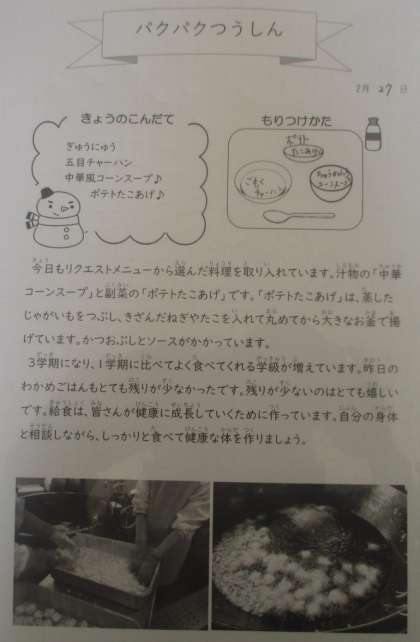 パクパクつうしん
2月 27 日
きょうのこんだて
ぎゅうにゅう
五目チャーハン
中華風コーンスープ♪
ポテトたこあげ♪
もりつけかた
ポテト
たこあげ
ごもく
チャーハン
ちゅうかふう
コーンスープ
今日もリクエストメニューから選んだ料理を取り入れています。汁物の「中華
コーンスープ」と副菜の「ポテトたこあげ」です。「ポテトたこあげ」は、蒸した
じゃがいもをつぶし、きざんだねぎやたこを入れて丸めてから大きなお釜で揚
げています。かつおぶしとソースがかかっています。
3学期になり、1学期に比べてよく食べてくれる学級が増えています。昨日の
わかめごはんもとても残りが少なかったです。残りが少ないのはとても嬉しい
です。給食は、皆さんが健康に成長していくために作っています。自分の身体
と相談しながら、しっかりと食べて健康な体を作りましょう。